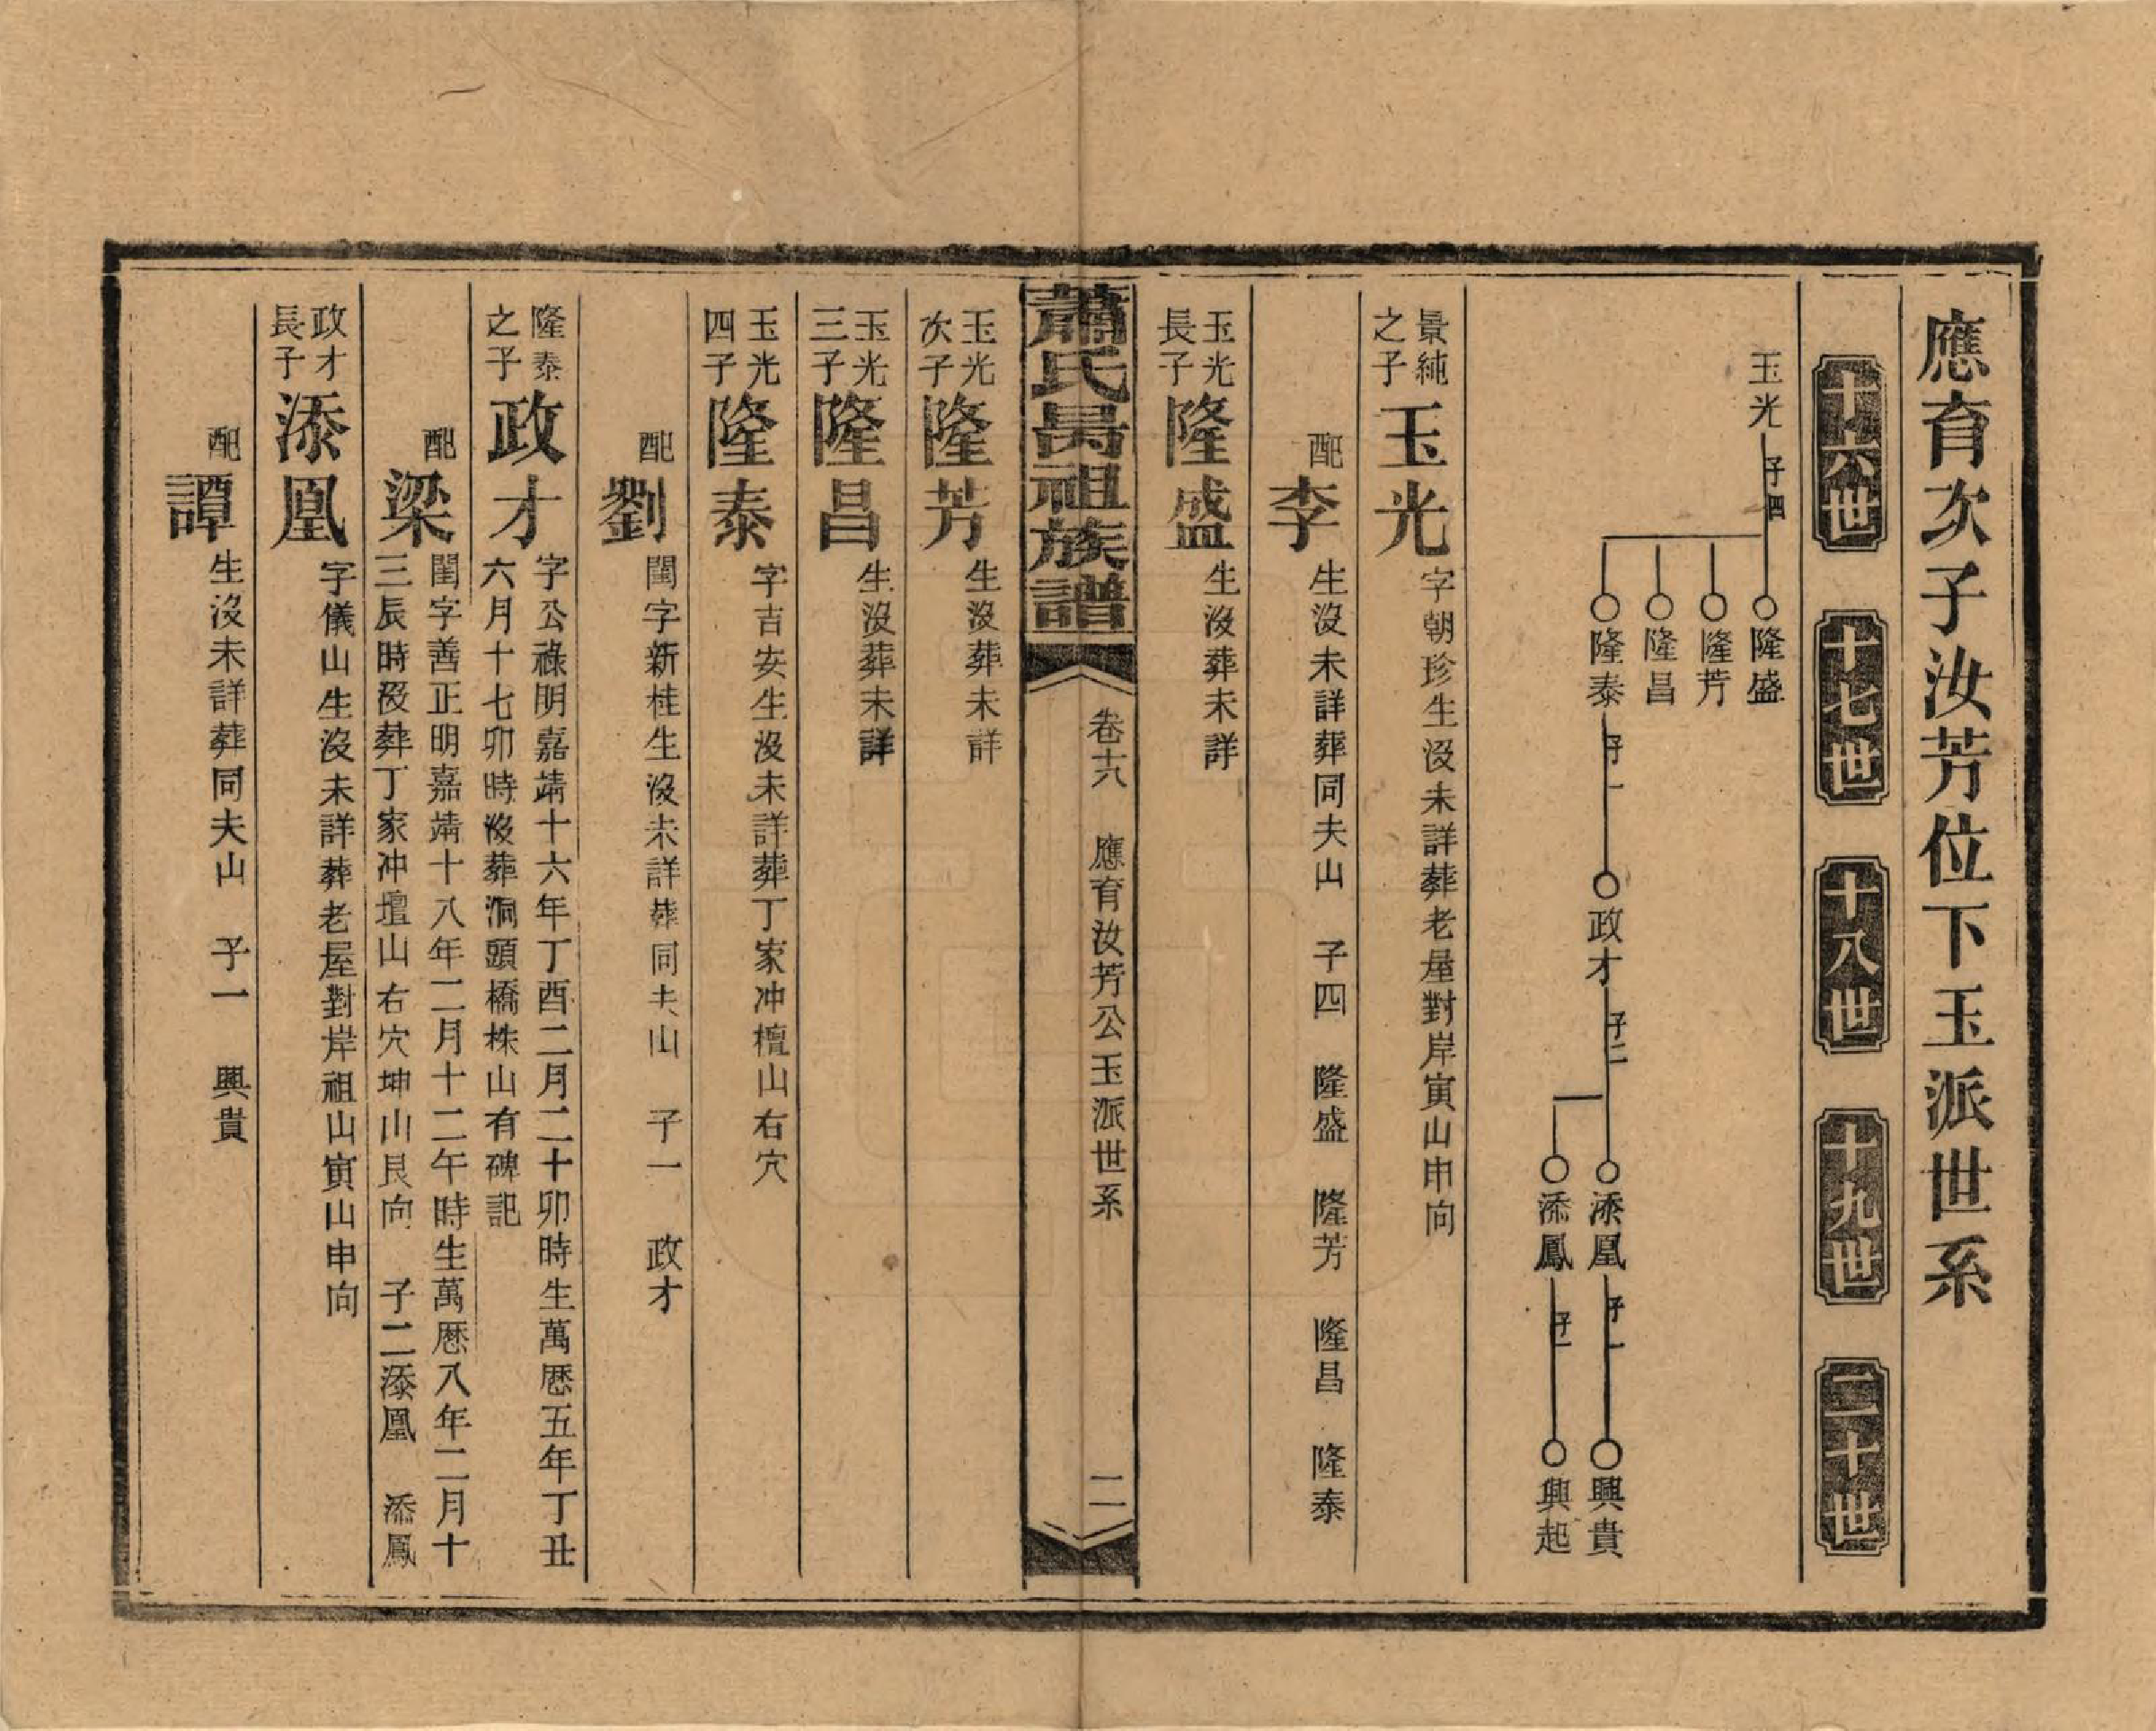 應育次子汝芳位下玉派世系
十六世
十七世
十八世
十九世
二十世
玉光 子四
隆盛
隆芳
隆昌
隆泰 子一
政才 子二
添凰 子一
興貴
添鳳 子一
興起
景純之子 玉光 字朝珍生沒未詳葬老屋對岸寅山申向
配 李 生沒未詳葬同夫山 子四 隆盛 隆芳 隆昌 隆泰
玉光長子 隆盛 生沒葬未詳
蕭氏昺祖族譜
卷十六 應育汝芳公玉派世系 二
玉光次子 隆芳 生沒葬未詳
玉光三子 隆昌 生沒葬未詳
玉光四子 隆泰 字吉安生沒未詳葬丁家冲檀山右穴
配 劉 閨字新桂生沒未詳葬同夫山 子一 政才
隆泰之子 政才 字公祿明嘉靖十六年丁酉二月二十卯時生萬厯五年丁丑
六月十七卯時沒葬洞頭橋株山有碑記
配 梁 閨字善正明嘉靖十八年二月十二午時生萬厯八年二月十
三辰時沒葬丁家冲壇山右穴坤山艮向 子二 添凰 添鳳
政才長子 添凰 字儀山生沒未詳葬老屋對岸祖山寅山申向
配 譚 生沒未詳葬同夫山 子一 興貴